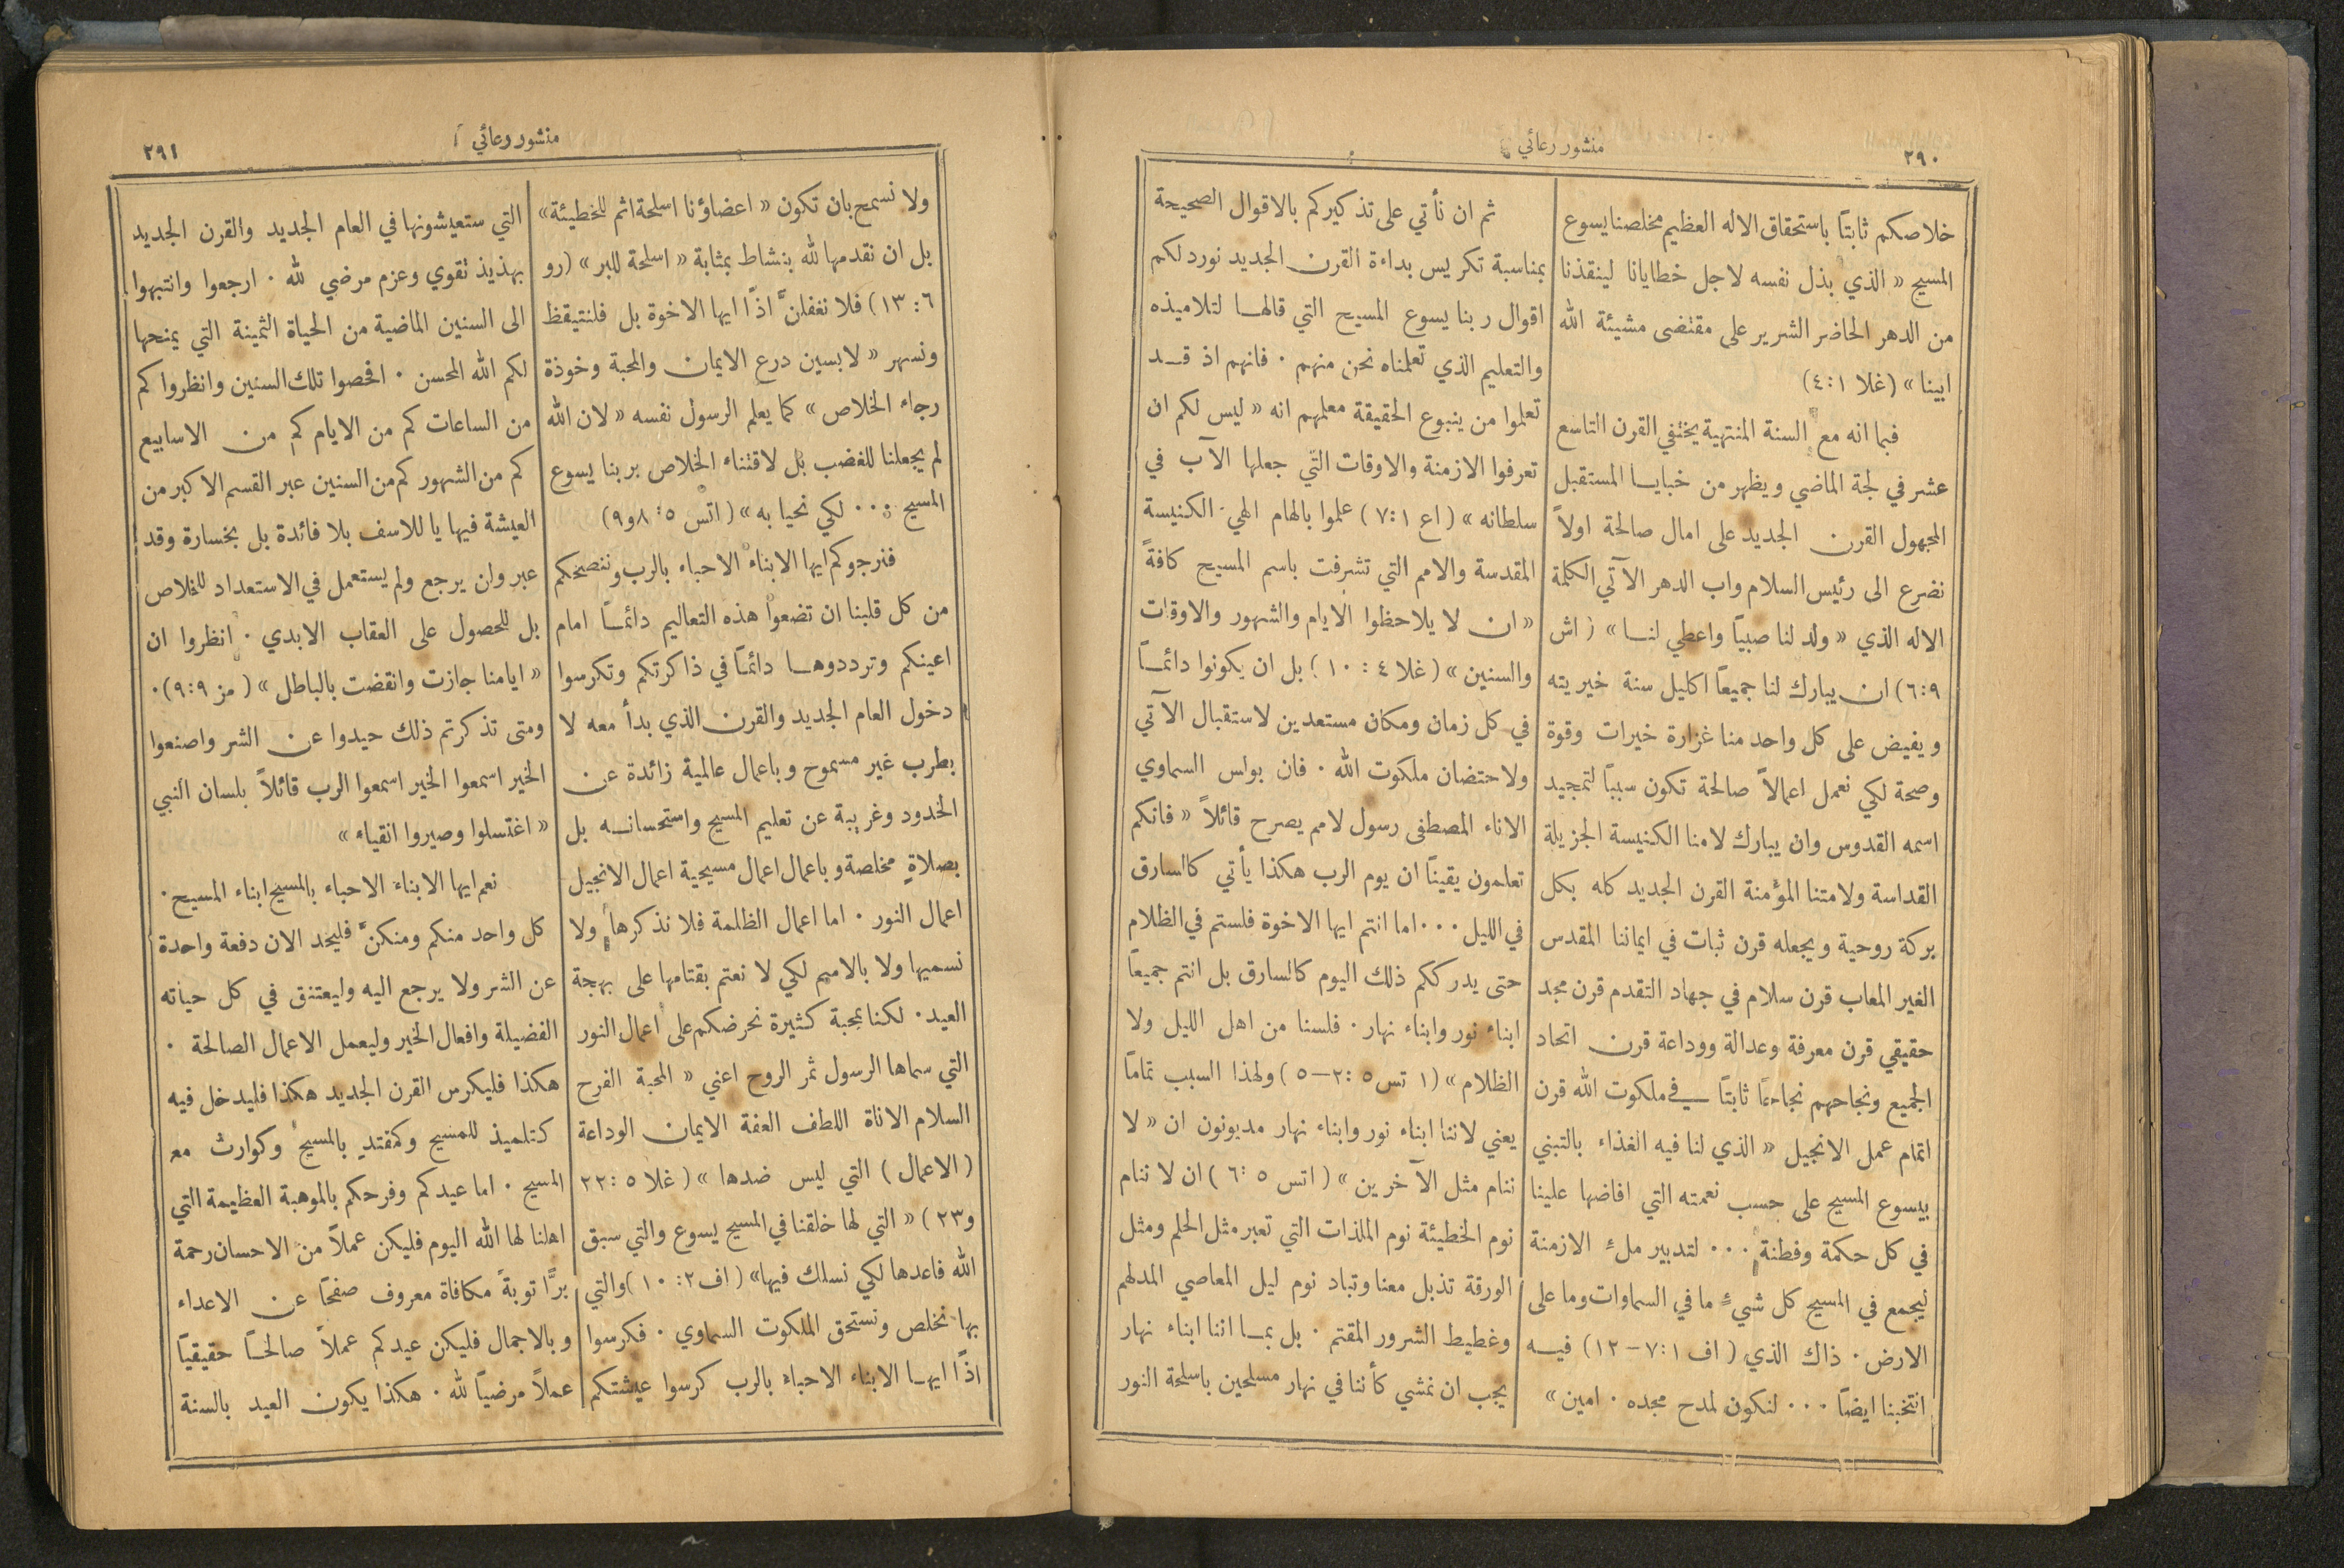 ٢٩٠
منشور رعائي
خلاصكم ثابتًا باستحقاق الاله العظيم مخلصنا يسوع
المسيح « الذي بذل نفسه لاجل خطايانا لينقذنا
من الدهر الحاضر الشرير على مقتضى مشيئة الله
ابينا » (غلا ١:٤)
فبما انه مع السنة المنتهية يختفي القرن التاسع
عشر في لجة الماضي ويظهر من خبايا المستقبل
المجهول القرن الجديد على امال صالحة اولاً
نضرع الى رئيس السلام واب الدهر الآتي الكلمة
الاله الذي « ولد لنا صبيًا واعطي لنا » (اش
٦:٩) ان يبارك لنا جميعًا اكليل سنة خيريته
ويفيض على كل واحد منا غزارة خيرات وقوة
وصحة لكي نعمل اعمالاً صالحة تكون سببًا لتمجيد
اسمه القدوس وان يبارك لامنا الكنيسة الجزيلة
القداسة ولامتنا المؤمنة القرن الجديد كله بكل
بركة روحية ويجعله قرن ثبات في ايماننا المقدس
الغير المعاب قرن سلام في جهاد التقدم قرن مجد
حقيقي قرن معرفة وعدالة ووداعة قرن اتحاد
الجميع ونجاحهم نجاحًا ثابتًا في ملكوت الله قرن
اتمام عمل الانجيل « الذي لنا فيه الغذاء بالتبني
بيسوع المسيح على حسب نعمته التي افاضها علينا
في كل حكمة وفطنة ... لتدبير ملء الازمنة
ليجمع في المسيح كل شيءٍ ما في السماوات وما على
الارض . ذاك الذي (اف ١:٧–١٢) فيه
انتخبنا ايضًا ... لنكون لمدح مجده . امين »
ثم ان نأتي على تذكيركم بالاقوال الصحيحة
بمناسبة تكريس بداءة القرن الجديد نورد لكم
اقوال ربنا يسوع المسيح التي قالها لتلاميذه
والتعليم الذي تعلمناه نحن منهم . فانهم اذ قد
تعلموا من ينبوع الحقيقة معلمهم انه « ليس لكم ان
تعرفوا الازمنة والاوقات التي جعلها الآب في
سلطانه » (اع ١:٧) علموا بالهام الهي الكنيسة
المقدسة والامم التي تشرفت باسم المسيح كافةً
« ان لا يلاحظوا الايام والشهور والاوقات
والسنين » (غلا ٤ : ١٠) بل ان يكونوا دائمًا
في كل زمان ومكان مستعدين لاستقبال الآتي
ولاحتضان ملكوت الله . فان بولس السماوي
الاناء المصطفى رسول لامم يصرح قائلاً « فانكم
تعلمون يقينًا ان يوم الرب هكذا يأتي كالسارق
في الليل ... اما انتم ايها الاخوة فلستم في الظلام
حتى يدرككم ذلك اليوم كالسارق بل انتم جميعًا
ابناء نور وابناء نهار . فلسنا من اهل الليل ولا
الظلام » (١ تس ٥ :٢–٥) ولهذا السبب تمامًا
يعني لاننا ابناء نور وابناء نهار مديونون ان « لا
ننام مثل الآخرين » (اتس ٥ :٦) ان لا ننام
نوم الخطيئة نوم الملذات التي تعبر مثل الحلم ومثل
الورقة تذبل معنا وتباد نوم ليل المعاصي المدلهم
وغطيط الشرور المقتم . بل بما اننا ابناء نهار
يجب ان نمشي كأننا في نهار مسلحين باسلحة النور
منشور رعائي
٢٩١
ولا نسمح بان تكون « اعضاؤنا اسلحة اثم للخطيئة »
بل ان نقدمها لله بنشاط بمثابة « اسلحة للبر » (رو
٦: ١٣) فلا نغفلنَّ اذًا ايها الاخوة بل فلنتيقظ
ونسهر « لابسين درع الايمان والمحبة وخوذة
رجاء الخلاص » كما يعلم الرسول نفسه « لان الله
لم يجعلنا للغضب بل لاقتناء الخلاص بربنا يسوع
المسيح ... لكي نحيا به » (اتس ٥ :٨و٩)
فنرجوكم ايها الابناء الاحباء بالرب وننصحكم
من كل قلبنا ان تضعوا هذه التعاليم دائمًا امام
اعينكم وترددوها دائمًا في ذاكرتكم وتكرسوا
دخول العام الجديد والقرن الذي بدأ معه لا
بطرب غير مسموح وباعمال عالمية زائدة عن
الحدود وغريبة عن تعليم المسيح واستحسانه بل
بصلاةٍ مخلصة وباعمال اعمال مسيحية اعمال الانجيل
اعمال النور . اما اعمال الظلمة فلا نذكرها ولا
نسميها ولا بالاسم لكي لا نعتم بقتامها على بهجة
العيد . لكنا بمحبة كثيرة نحرضكم على اعمال النور
التي سماها الرسول ثمر الروح اعني « المحبة الفرح
السلام الاناة اللطف العفة الايمان الوداعة
(الاعمال) التي ليس ضدها » (غلا ٥ :٢٢
و٢٣) « التي لها خلقنا في المسيح يسوع والتي سبق
الله فاعدها لكي نسلك فيها » (اف ٢: ١٠) والتي
بها نخلص ونستحق الملكوت السماوي . فكرسوا
اذًا ايها الابناء الاحباء بالرب كرسوا عيشتكم
التي ستعيشونها في العام الجديد والقرن الجديد
بهذيذ تقوي وعزم مرضي لله . ارجعوا وانتبهوا
الى السنين الماضية من الحياة الثمينة التي يمنحها
لكم الله المحسن . افحصوا تلك السنين وانظروا كم
من الساعات كم من الايام كم من الاسابيع
كم من الشهور كم من السنين عبر القسم الاكبر من
العيشة فيها يا للاسف بلا فائدة بل بخسارة وقد
عبر ولن يرجع ولم يستعمل في الاستعداد للخلاص
بل للحصول على العقاب الابدي . انظروا ان
« ايامنا جازت وانقضت بالباطل » (مز ٩:٩) .
ومتى تذكرتم ذلك حيدوا عن الشر واصنعوا
الخير اسمعوا الخير اسمعوا الرب قائلاً بلسان النبي
« اغتسلوا وصيروا انقياء »
نعم ايها الابناء الاحباء بالمسيح ابناء المسيح .
كل واحد منكم ومنكنَّ فليحد الان دفعة واحدة
عن الشر ولا يرجع اليه وليعتنق في كل حياته
الفضيلة وافعال الخير وليعمل الاعمال الصالحة .
هكذا فليكرس القرن الجديد هكذا فليدخل فيه
كتلميذ للمسيح وكمفتدٍ بالمسيح وكوارث مع
المسيح . اما عيدكم وفرحكم بالموهبة العظيمة التي
اهلنا لها الله اليوم فليكن عملاً من الاحسان رحمة
برًّا توبةً مكافاة معروف صفحًا عن الاعداء
وبالاجمال فليكن عيدكم عملاً صالحًا حقيقيًا
عملاً مرضيًا لله . هكذا يكون العيد بالسنة